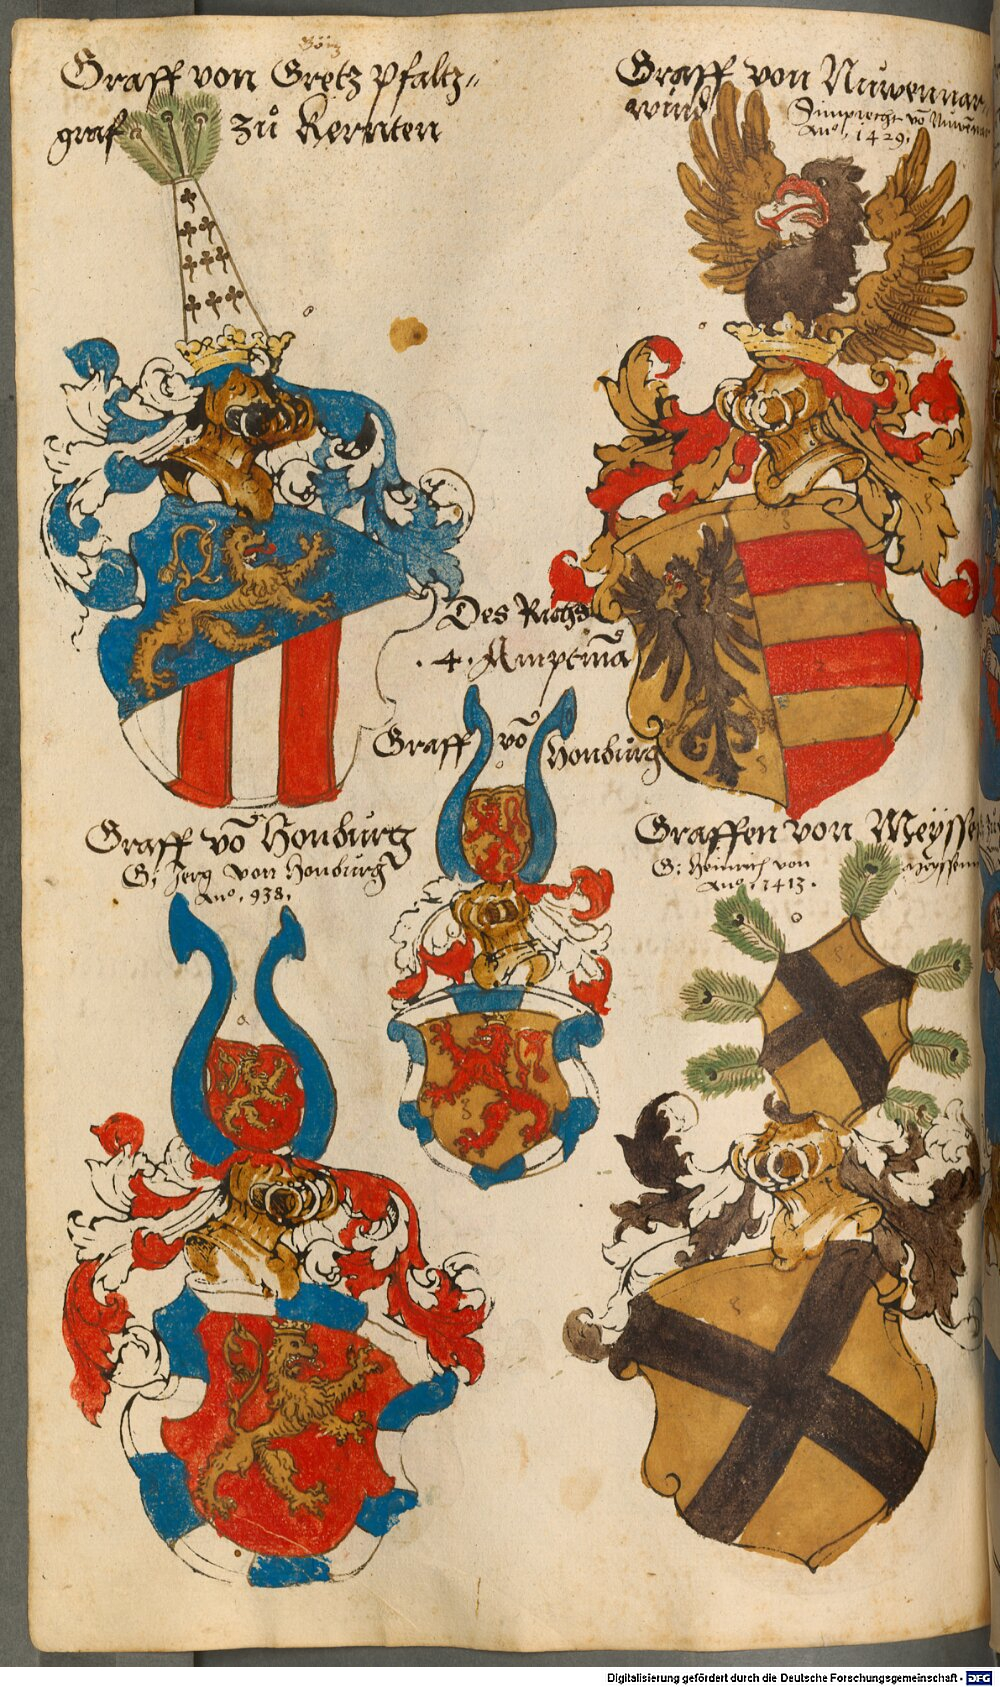 Görtz
Graff von Gretz pfaltz=
graf zů Kernten
Graff von Nüwennar
wind
Simprecht võ Nuwennar
Anº. 1429.
Des Richs
.4. Amptmã
Graff võ Honbürg
Graff võ Honbürg
G: Jerg von Honbürg
Anº. 938.
Graffen von Meÿssen
G: Heinrich von Meyssenn
Anº. 1413.
Digitalisierung gefördert durch die Deutsche Forschungsgemeinschaft - DFG